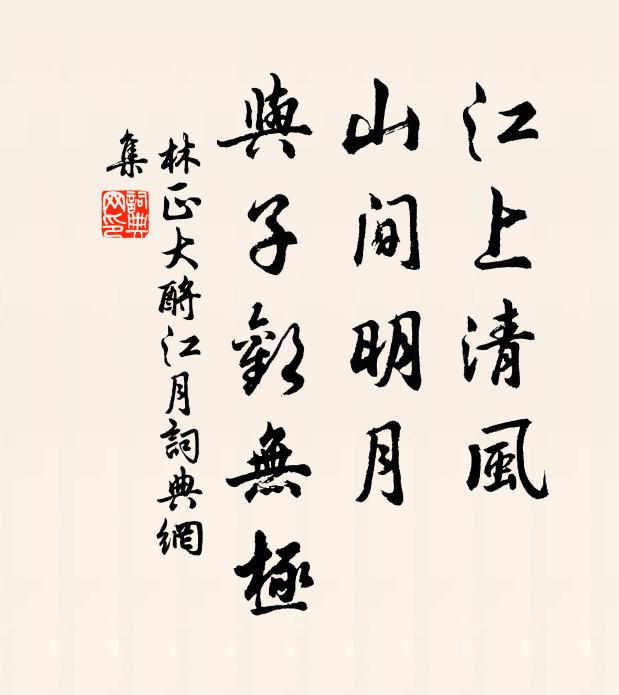 江上清風
山間明月
與子歡無極
林正大酹江月詞典網
集
詞典網印